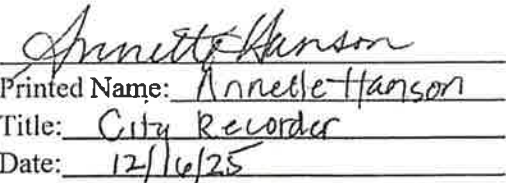 Annette Hanson
Printed Name: Annette Hanson
Title: City Recorder
Date: 12/16/25